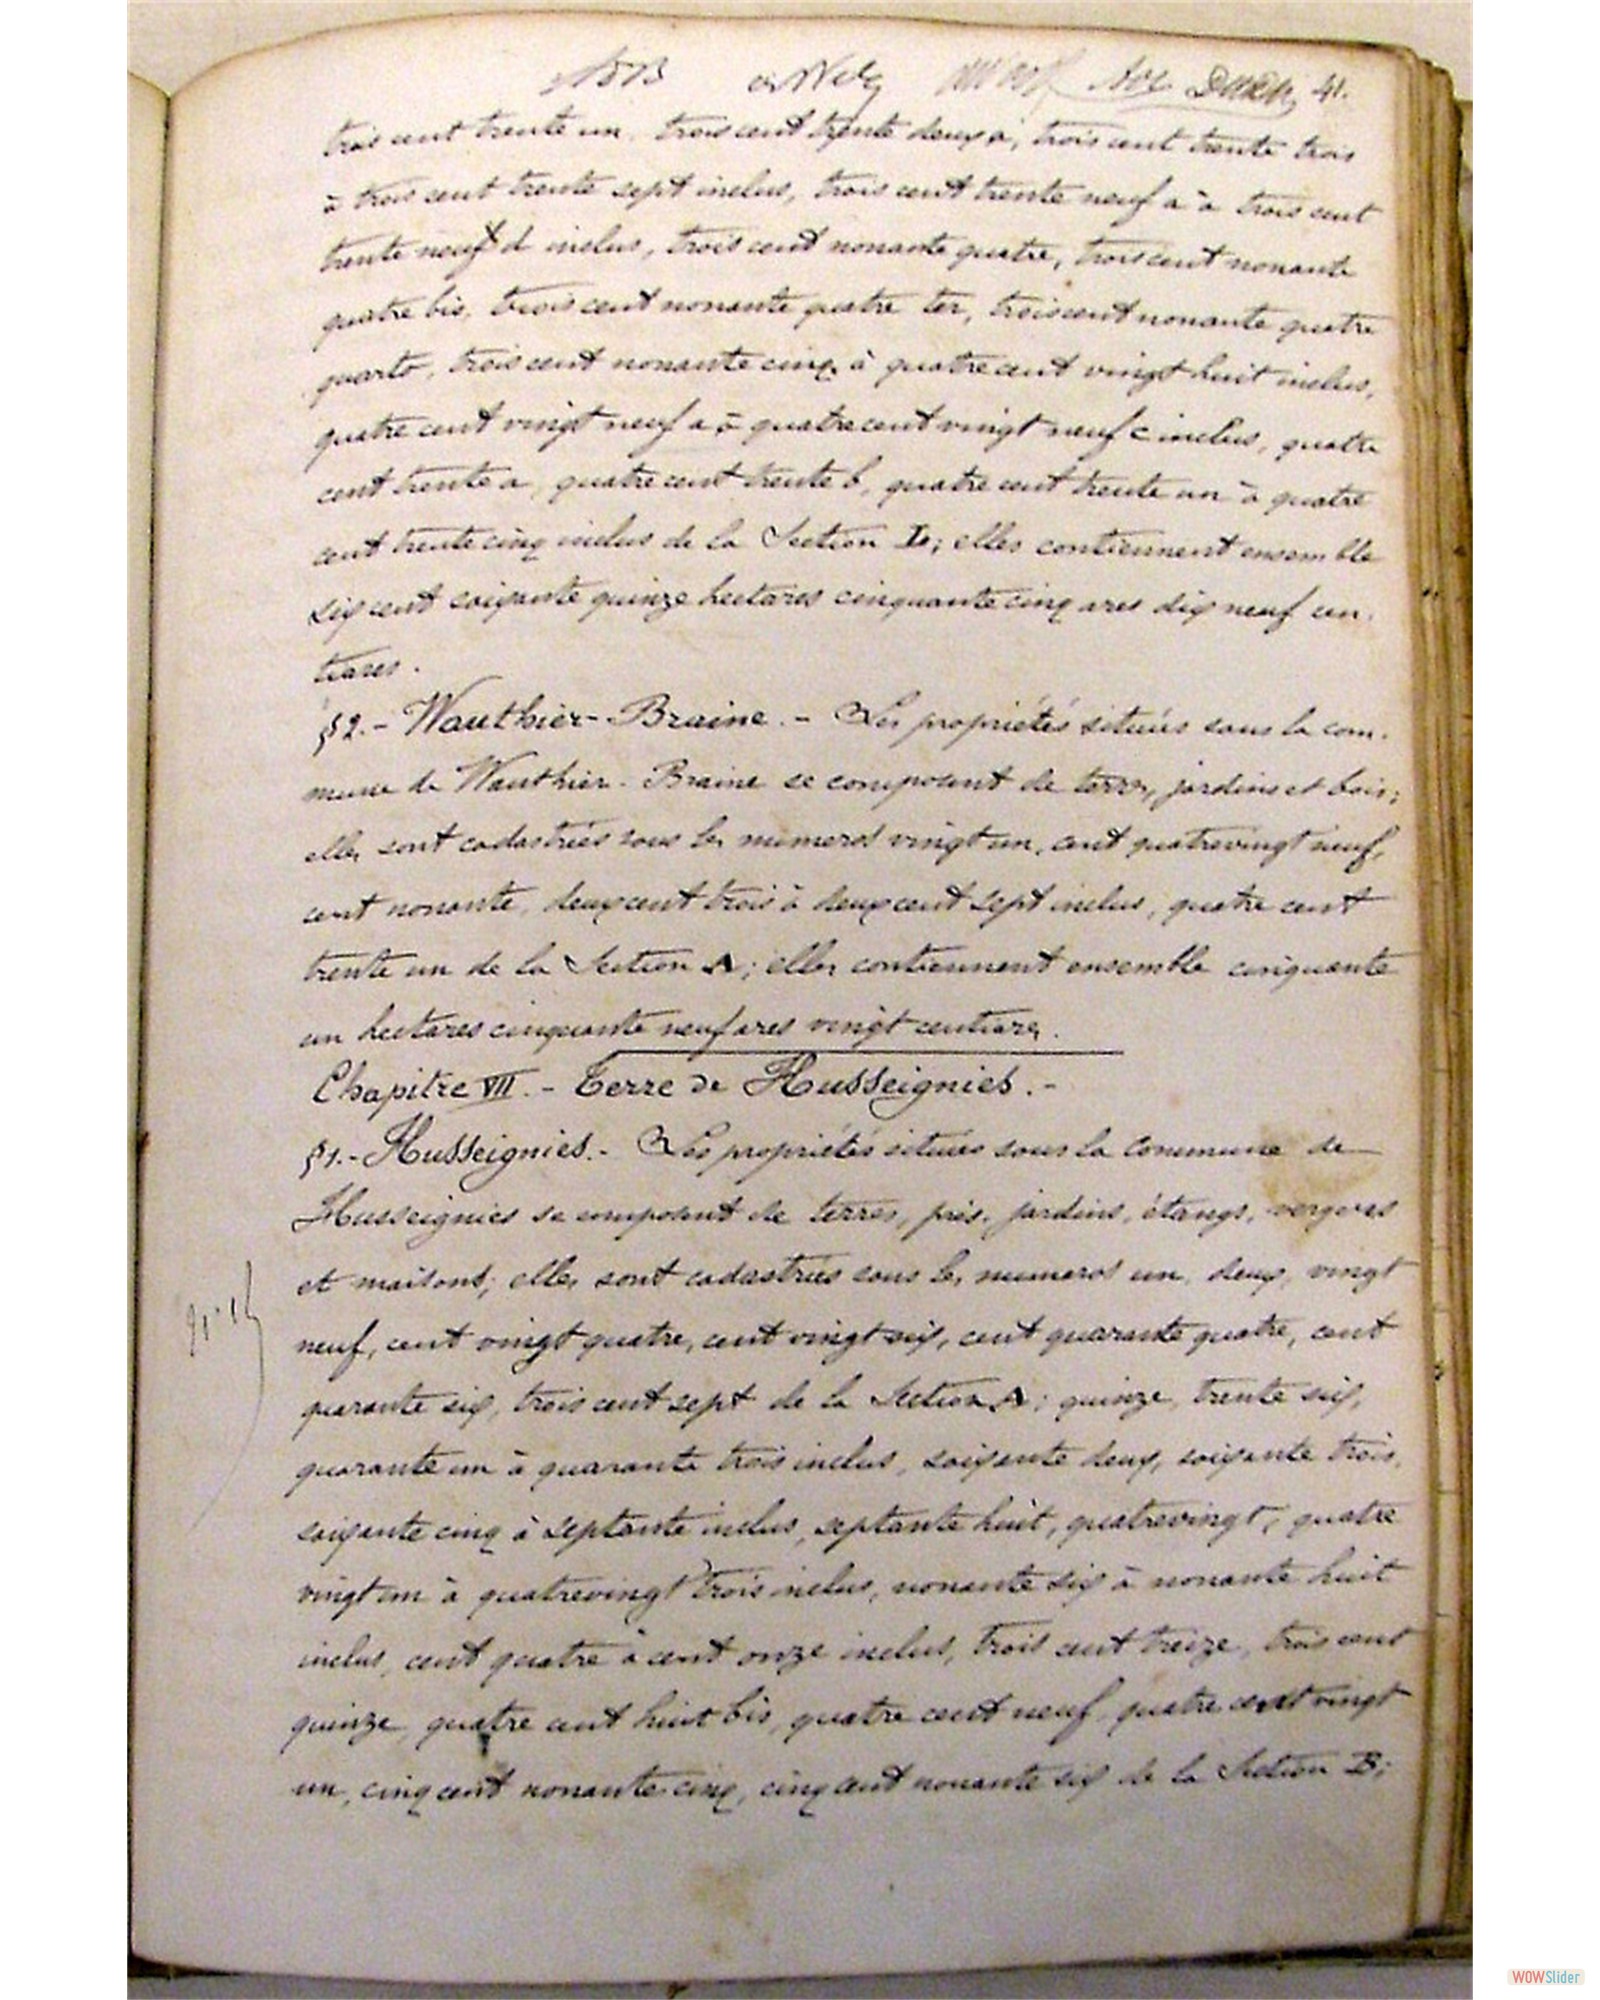 41.
trois cent trente un, trois cent trente deux a, trois cent trente trois
à trois cent trente sept inclus, trois cent trente neuf a à trois cent
trente neuf d inclus, trois cent nonante quatre, trois cent nonante
quatre bis, trois cent nonante quatre ter, trois cent nonante quatre
quarto, trois cent nonante cinq à quatre cent vingt huit inclus,
quatre cent vingt neuf a à quatre cent vingt neuf c inclus, quatre
cent trente a, quatre cent trente b, quatre cent trente un à quatre
cent trente cinq inclus de la Section ; elles contiennent ensemble
six cent soixante quinze hectares cinquante cinq ares dix neuf cen.
tiares.
§2.- Wauthier-Braine.- Les propriétés situées sous la com.
mune de Wauthier-Braine se composent de terres, jardins et bois;
elles sont cadastrées sous les numeros vingt un, cent quatrevingt neuf,
cent nonante, deux cent trois à deux cent sept inclus, quatre cent
trente un de la Section A; elles contiennent ensemble cinquante
un hectares cinquante neuf ares vingt centiares.
Chapitre VII.- Terre de Husseignies.-
§1.- Husseignies.- Les propriétés situées sous la Commune de
Husseignies se composent de terres, prés, jardins, étangs, vergers
et maisons; elles sont cadastrées sous les numeros un, deux, vingt
neuf, cent vingt quatre, cent vingt six, cent quarante quatre, cent
quarante six, trois cent sept de la Section A; quinze, trente six,
quarante un à quarante trois inclus, soixante deux, soixante trois,
soixante cinq à septante inclus, septante huit, quatrevingt, quatre
vingt un à quatrevingt trois inclus, nonante six à nonante huit
inclus, cent quatre à cent onze inclus, trois cent treize, trois cent
quinze, quatre cent huit bis, quatre cent neuf, quatre cent vingt
un, cinq cent nonante cinq, cinq cent nonante six de la Section B;
WOWSlider